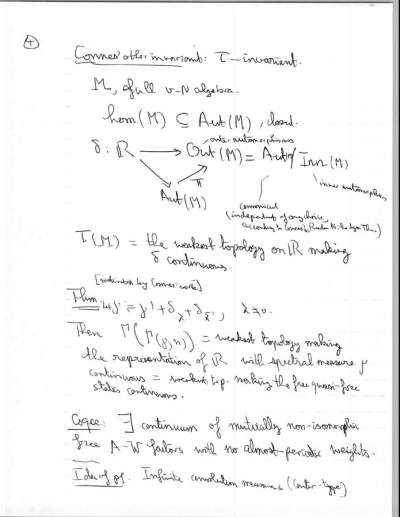 4
Connes' other invariant: τ-invariant.
M, full v-N algebra.
hom(M) ⊆ Aut(M), closed.
outer automorphisms
δ: ℝ → Out(M) = Aut/Inn(M)
π
inner automorphisms
Aut(M)
canonical
(independent of any choice,
according to Connes' Radon-Nikodym Thm)
τ(M) = the weakest topology on ℝ making
δ continuous.
[motivation by Connes' work]
Thm: μ' = μ' + δ_λ + δ_λ-1, λ≠0.
Then = weakest topology making
the representation of ℝ with spectral measure μ
continuous = weakest top. making the free quasi-free
states continuous.
∃ continuum of mutually non-isomorphic
free A-W factors with no almost-periodic weights.
Idea of pf. Infinite convolution measures (Cantor-type)